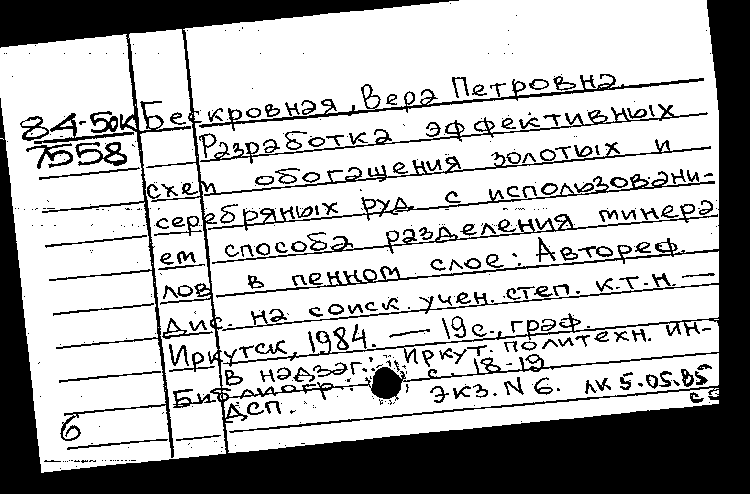 84-5ок Бескровная, Вера Петровна.
7558 Разработка эффективных
схем обогащения золотых и
серебряных руд с использовани-
ем способа разделения минера
лов в пенном слое: Автореф.
дис. на соиск. учен. степ. к.т.н. —
Иркутск, 1984. — 19 с., граф.
В надзаг.: Иркут. политехн. ин-
Библиогр.: с. 18-19
ДСП. экз. N 6. ЛК 5.05.85
6